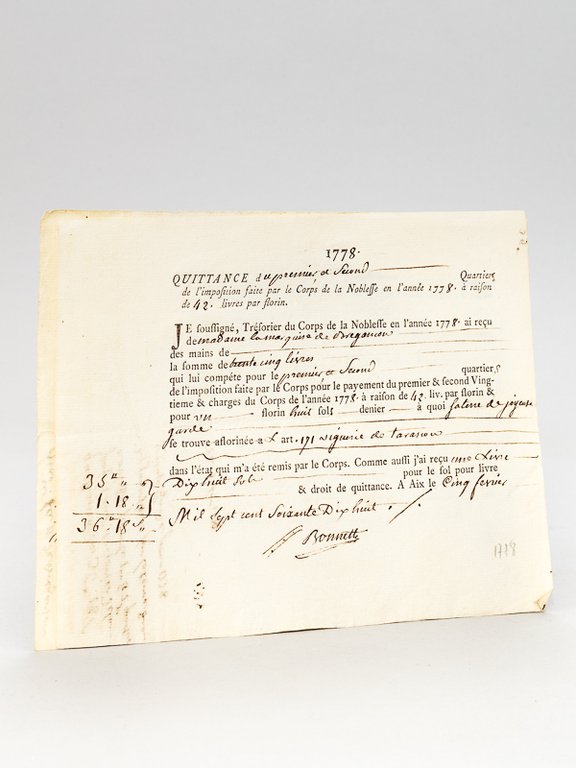 1778.
QUITTANCE du premier et Second Quartiers
de l'imposition faite par le Corps de la Noblesse en l'année 1778. à raison
de 42. livres par florin.
JE soussigné, Trésorier du Corps de la Noblesse en l'année 1778. ai reçu
de madame la marquise de Bregancon
des mains de
la somme de trente cinq livres
qui lui compéte pour le premier et Second quartiers
de l'imposition faite par le Corps pour le payement du premier & second Ving-
tieme & charges du Corps de l'année 1778. à raison de 42. liv. par florin &
pour un florin huit sols denier à quoi sa terre de joyeuse
garde
se trouve aflorinée a l'art. 171 viguerie de tarascon
dans l'état qui m'a été remis par le Corps. Comme aussi j'ai reçu une Livre
Dix huit Sols pour le sol pour livre
& droit de quittance. A Aix le Cinq fevrier
Mil Sept cent Soixante Dix huit ./.
Bonnett
35 " "
1. 18 "
36 " 18 s
1778